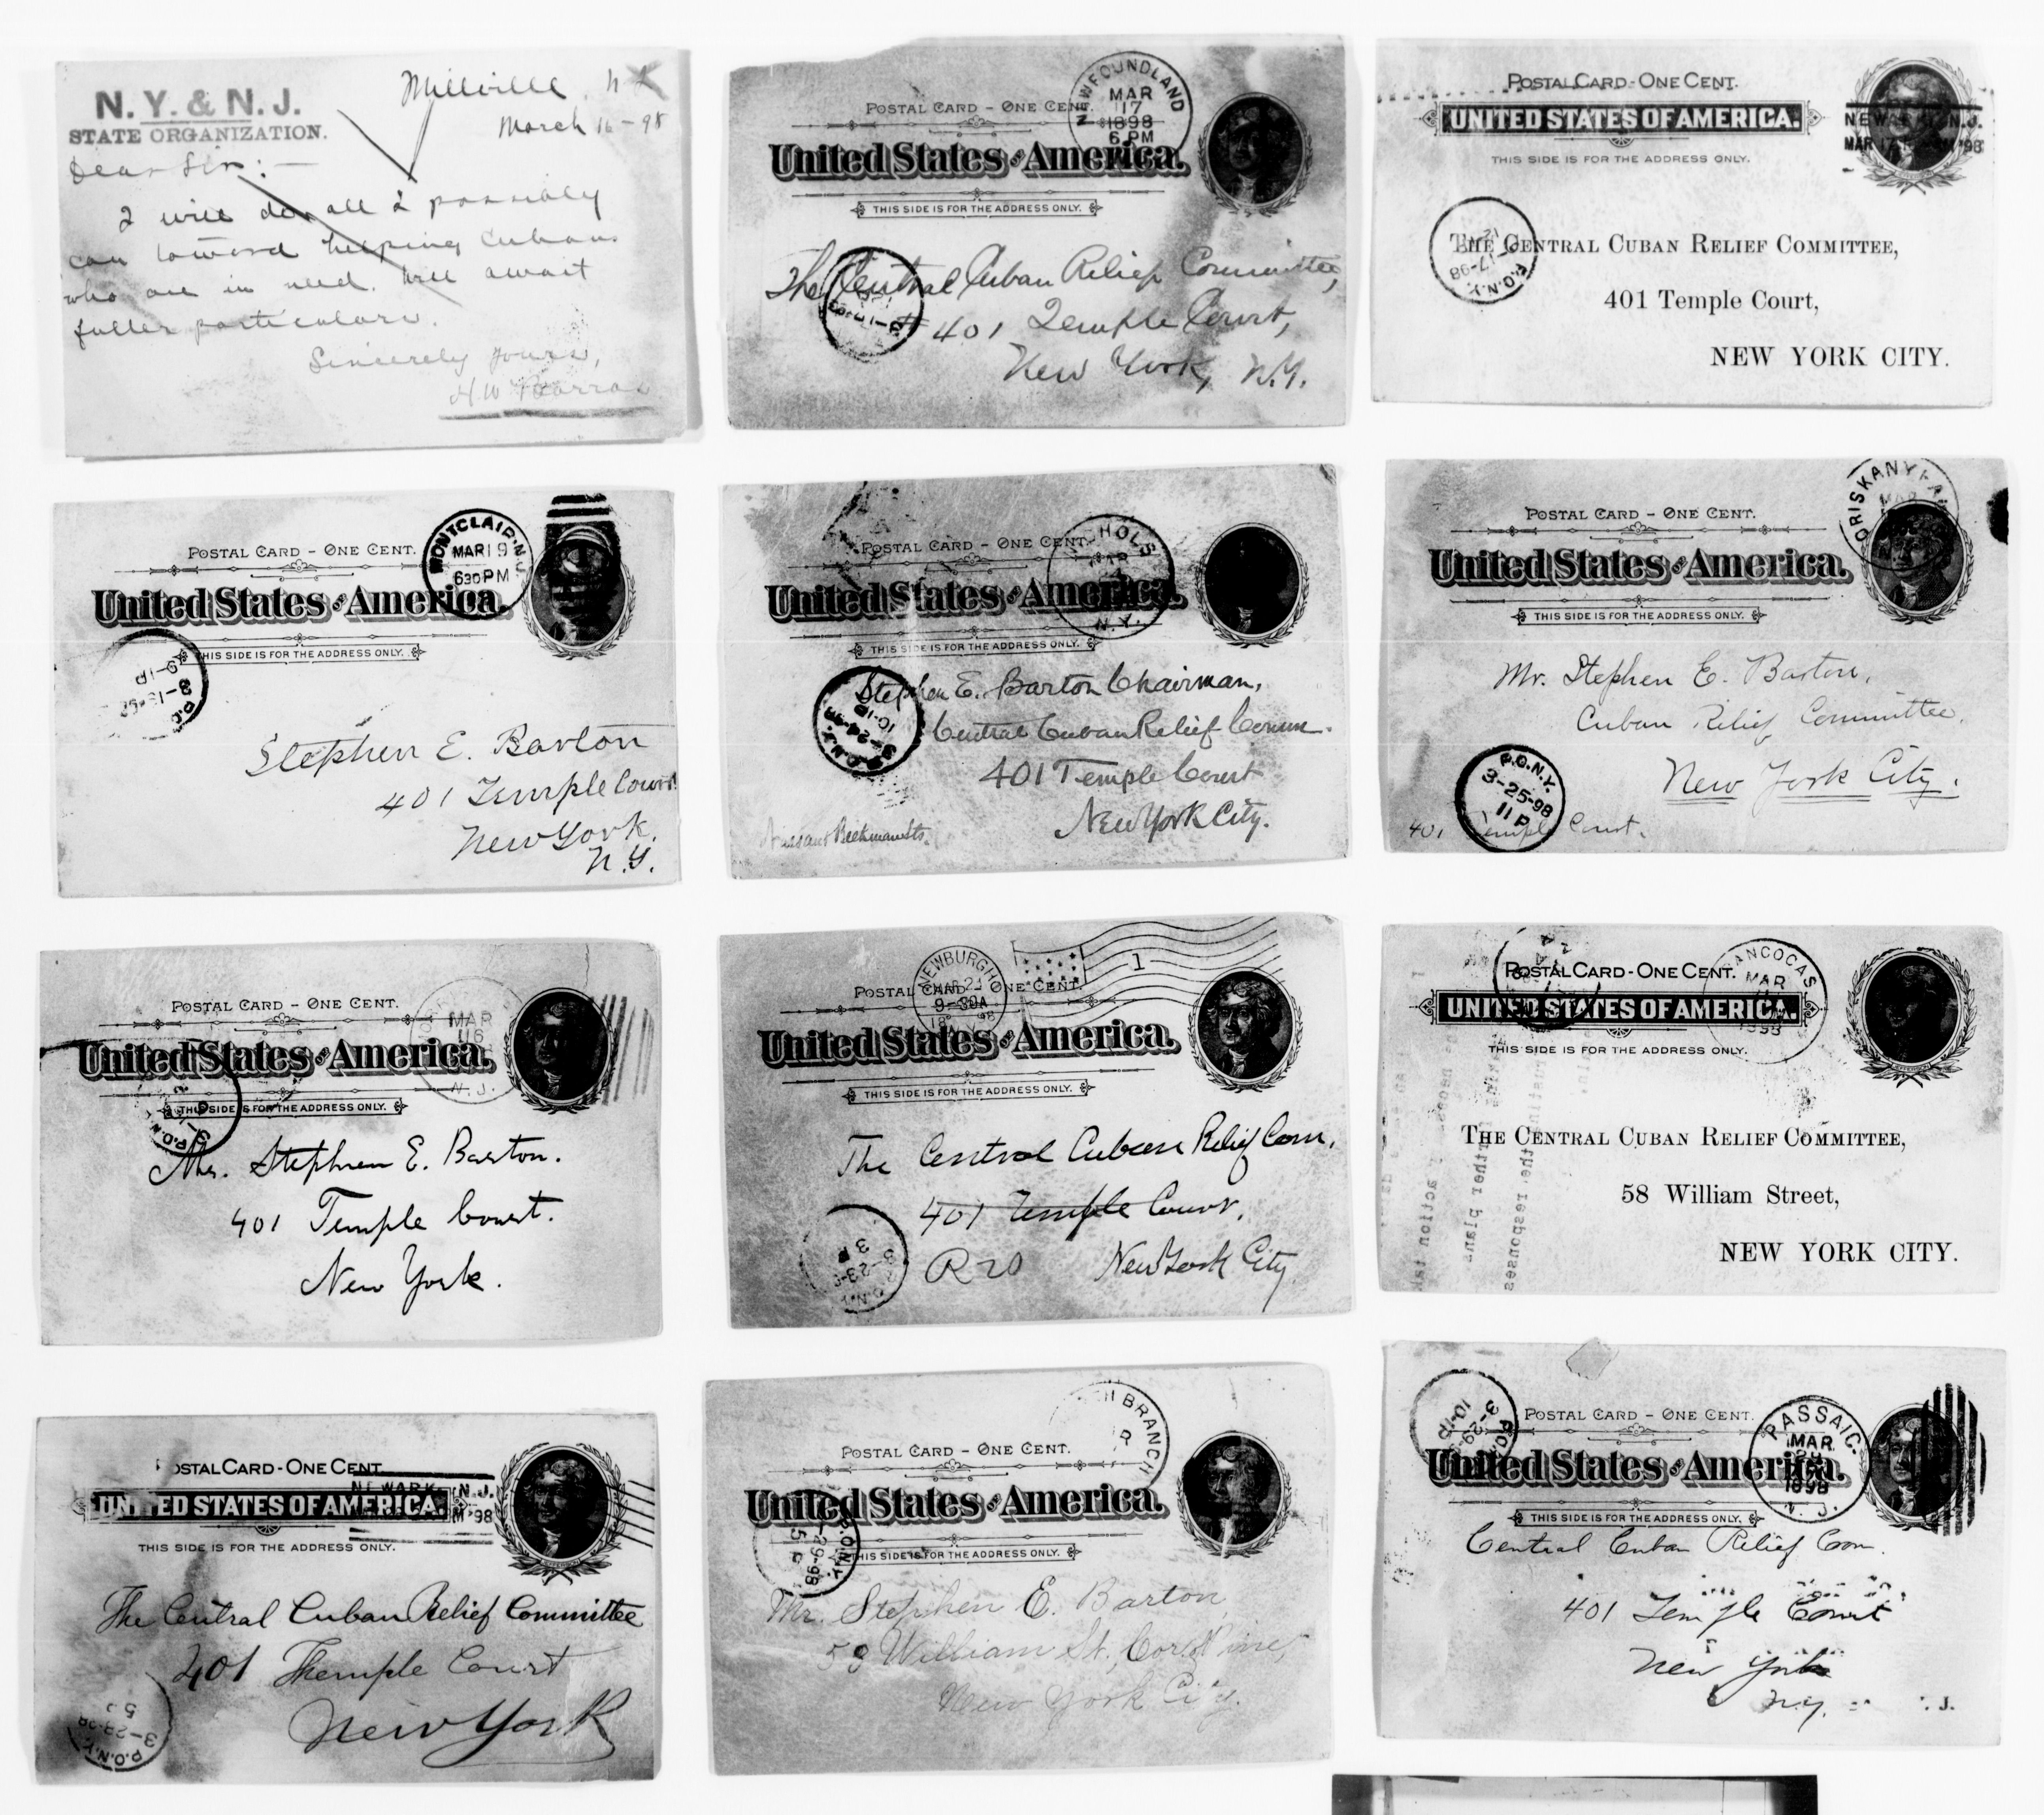 N. Y. & N. J.
STATE ORGANIZATION.
Millville, N J
March 16 - 98
Dear Sir: -
I will do all I possibly
can toward helping Cubans
who are in need. Will await
fuller particulars.
Sincerely yours,
H W
NEWFOUNDLAND
MAR
17
1898
6 PM
POSTAL CARD - ONE CENT.
United States of America.
THIS SIDE IS FOR THE ADDRESS ONLY.
The Central Cuban Relief Committee,
# 401 Temple Court,
New York, N.Y.
POSTAL CARD - ONE CENT.
UNITED STATES OF AMERICA.
THIS SIDE IS FOR THE ADDRESS ONLY.
NEWARK, N.J.
MAR 17 '98
P.O.N.Y.
17-98
THE CENTRAL CUBAN RELIEF COMMITTEE,
401 Temple Court,
NEW YORK CITY.
MONTCLAIR, N.J.
MAR 19
630 PM
POSTAL CARD - ONE CENT.
United States of America.
THIS SIDE IS FOR THE ADDRESS ONLY.
Stephen E. Barton
401 Temple Court
New York.
N.Y.
POSTAL CARD - ONE CENT.
N.Y.
United States of America.
THIS SIDE IS FOR THE ADDRESS ONLY.
P.O.N.Y.
3-24-98
10-1P
Stephen E. Barton Chairman,
Central Cuban Relief Comm.
401 Temple Court
New York City.
Nassau & Beekman Sts.
ORISKANY FA
MAR
POSTAL CARD - ONE CENT.
United States of America.
THIS SIDE IS FOR THE ADDRESS ONLY.
Mr. Stephen E. Barton,
Cuban Relief Committee,
New York City.
P.O.N.Y.
3-25-98
11 P
401 Temple Court.
POSTAL CARD - ONE CENT.
MAR
16
N.J.
United States of America.
THIS SIDE IS FOR THE ADDRESS ONLY.
P.O.N.Y.
Mr. Stephen E. Barton.
401 Temple Court.
New York.
NEWBURGH
9-30A
1
POSTAL CARD - ONE CENT.
United States of America.
THIS SIDE IS FOR THE ADDRESS ONLY.
The Central Cuban Relief Com.
401 Temple Court,
R 20 New York City
3-23-9
3 P
POSTAL CARD - ONE CENT.
ANCOCAS
MAR
1898
UNITED STATES OF AMERICA.
THIS SIDE IS FOR THE ADDRESS ONLY.
THE CENTRAL CUBAN RELIEF COMMITTEE,
58 William Street,
NEW YORK CITY.
the responses
ther plan
action tak
POSTAL CARD - ONE CENT.
NEWARK, N.J.
M '98
UNITED STATES OF AMERICA.
THIS SIDE IS FOR THE ADDRESS ONLY.
The Central Cuban Relief Committee
401 Themple Court
New York
P.O.N.Y.
3-28-98
H BRANCH
POSTAL CARD - ONE CENT.
United States of America.
THIS SIDE IS FOR THE ADDRESS ONLY.
P.O.N.Y.
-29-98
5 P
Mr. Stephen E. Barton,
58 William St., Cor. Pine,
New York City.
P.O.N.Y.
3-29-9
10-1P
POSTAL CARD - ONE CENT.
PASSAIC.
MAR
1898
N. J.
United States of America.
THIS SIDE IS FOR THE ADDRESS ONLY.
Central Cuban Relief Com.
401 Temple Court
New York
N.Y.
. J.